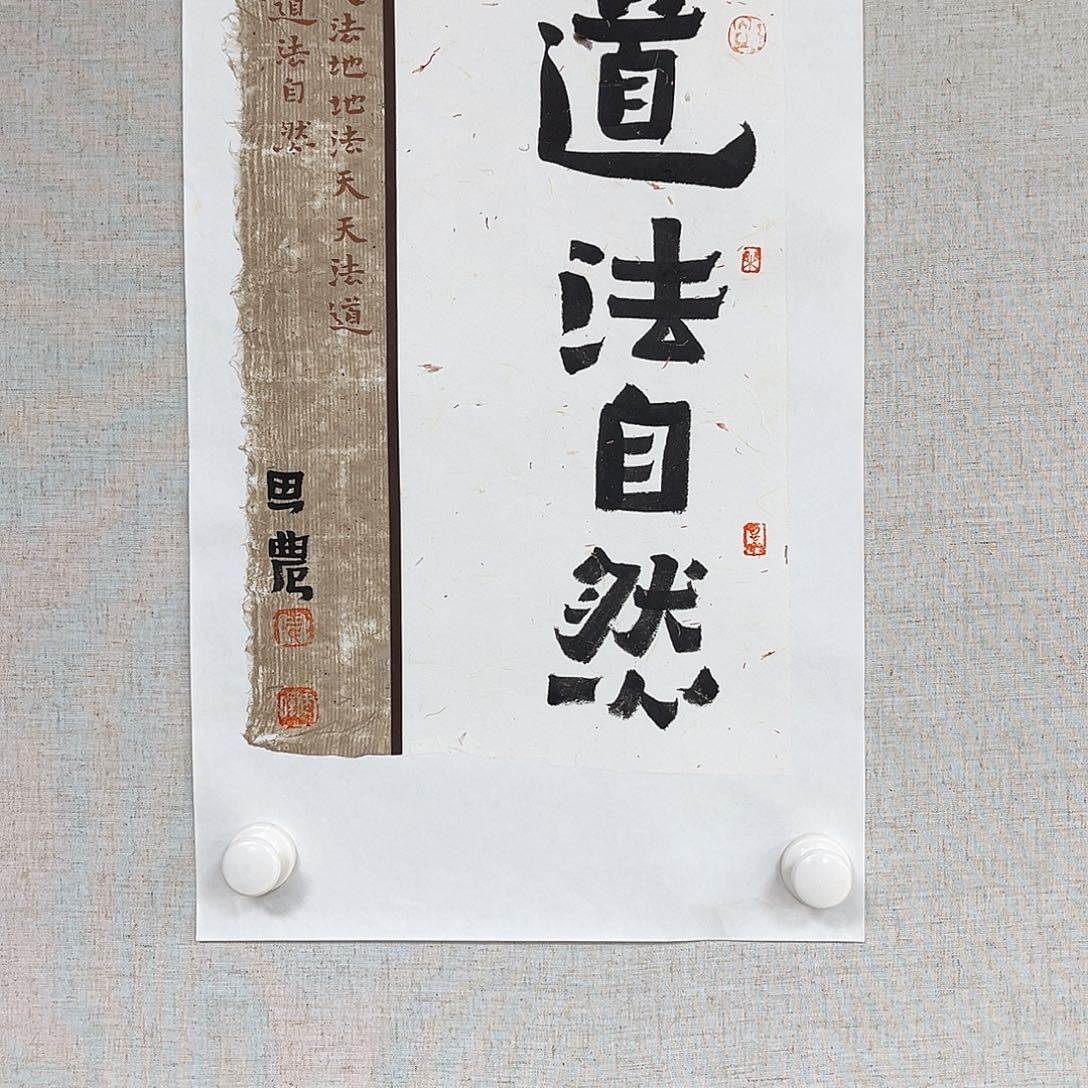 道法自然
法地地法天天法道
道法自然
農